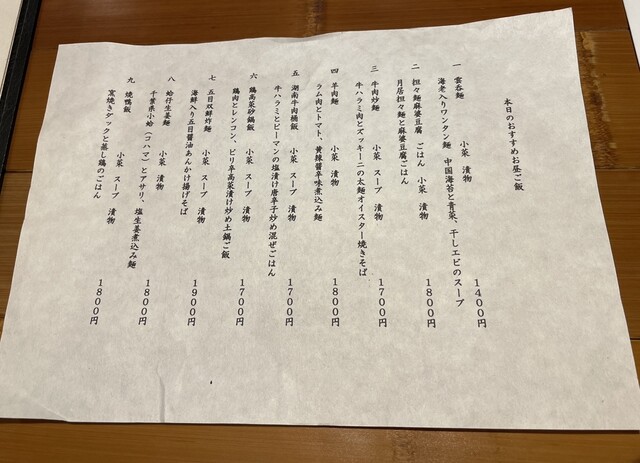 本日のおすすめお昼ご飯
一 雲呑麺 小菜 漬物
海老入りワンタン麺 中国海苔と青菜、干しエビのスープ
1400円
二 担々麺麻婆豆腐 ごはん 小菜 漬物
月居担々麺と麻婆豆腐ごはん
1800円
三 牛肉炒麺 小菜 スープ 漬物
牛ハラミ肉とズッキーニの太麺オイスター焼きそば
1700円
四 羊肉麺 小菜 漬物
ラム肉とトマト、黄辣醤辛味煮込み麺
1800円
五 湖南牛肉桶飯 小菜 スープ 漬物
牛ハラミとピーマンの塩漬け唐辛子炒め混ぜごはん
1700円
六 鶏高菜砂鍋飯 小菜 スープ 漬物
鶏肉とレンコン、ピリ辛高菜漬け炒め土鍋ご飯
1700円
七 五目双鮮炸麺 小菜 スープ 漬物
海鮮入り五目醤油あんかけ揚げそば
1900円
八 蛤仔生姜麺 小菜 漬物
千葉県小蛤(コハマ)とアサリ、塩生姜煮込み麺
1800円
九 焼鴨飯 小菜 スープ 漬物
窯焼きダックと蒸し鶏のごはん
1800円